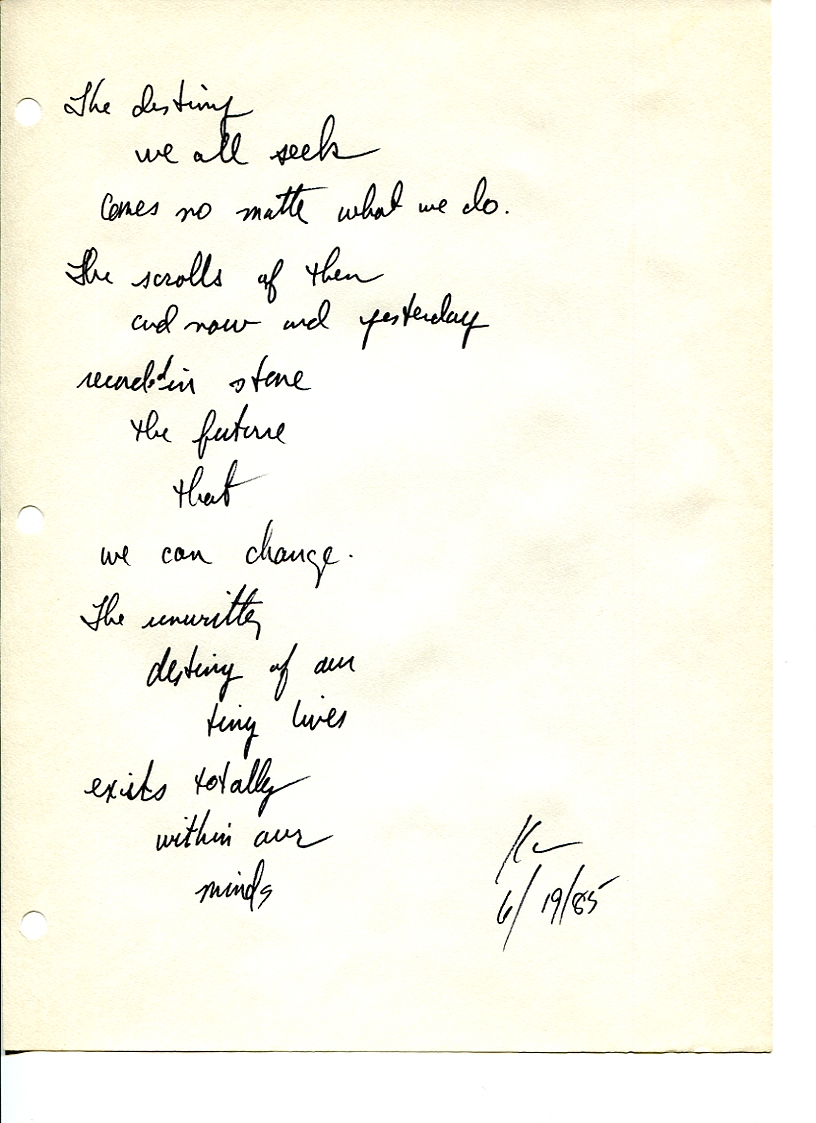 The destiny
we all seek
comes no matte what we do.
The scrolls of then
and now and yesterday
recorded in stone
the future
that
we can change.
The unwritten
destiny of our
tiny lives
exists totally
within our
minds
6/19/85